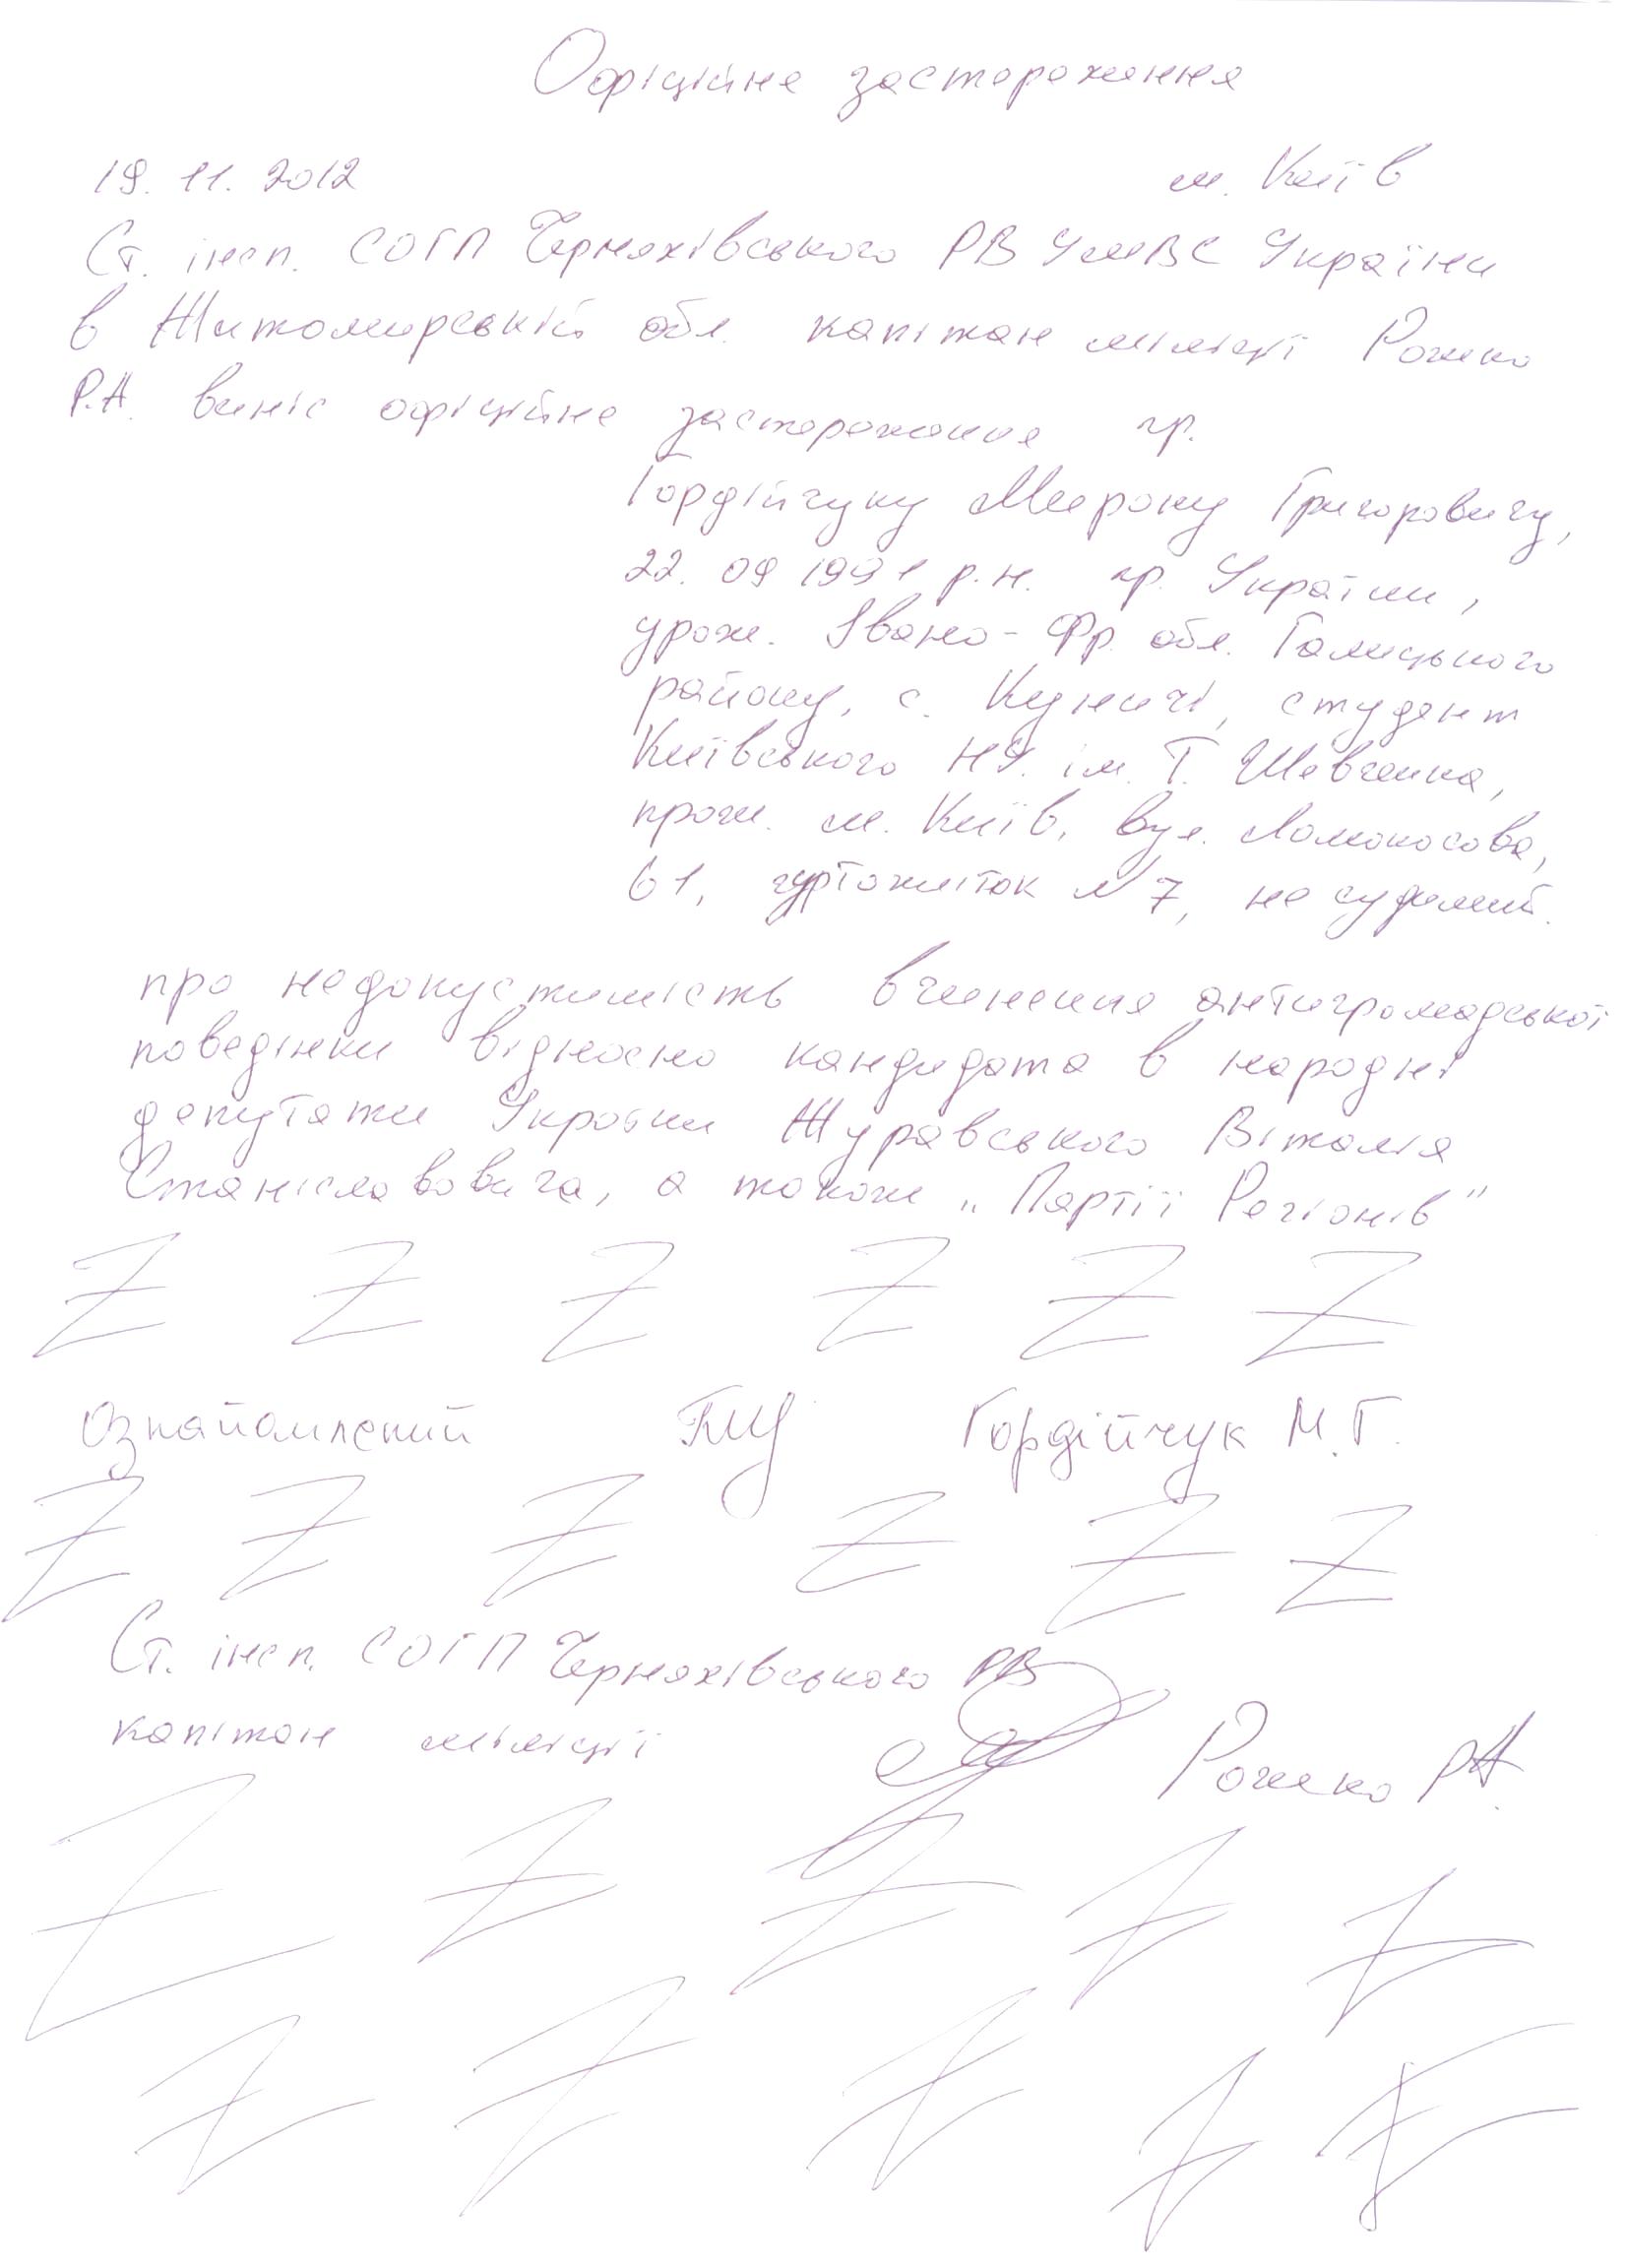 Офіційне застереження
19. 11. 2012 м. Київ
Ст. інсп. СОГП Черняхівського РВ УМВС України
в Житомирській обл. капітан міліції Рожко
Р.А. виніс офіційне застереження гр.
Гордійчуку Мирону Григоровичу,
22. 09 1991 р.н. гр. України,
урож. Івано-Фр. обл. Галицького
району, с. Куничі, студент
Київського НУ. ім. Т. Шевченка,
прож. м. Київ, вул. Ломоносова,
61, гуртожиток №7, не судимий.
про недопустимість вчинення антигромадської
поведінки відносно кандидата в народні
депутати України Журавського Віталія
Станіславовича, а також „Партії Регіонів"
Z Z Z Z Z Z
Ознайомлений Гордійчук М.Г.
Z Z Z Z Z Z
Ст. інсп. СОГП Черняхівського РВ
капітан міліції Рожко РА.
Z Z Z Z Z
Z Z Z Z Z